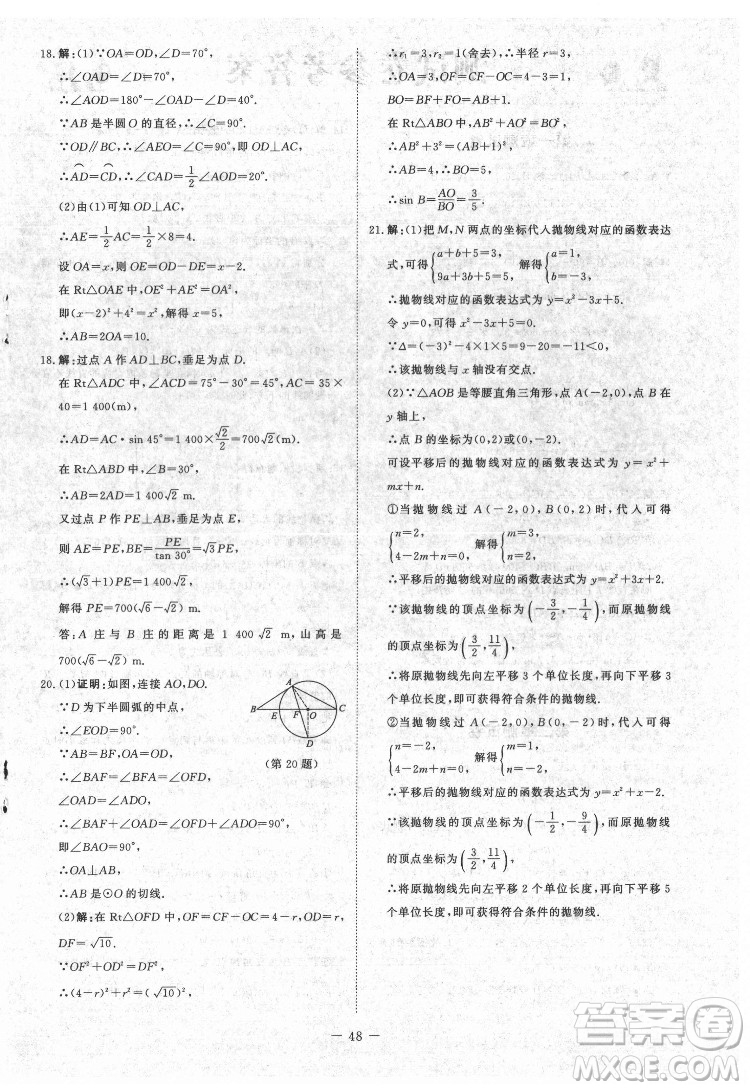 18. 解:(1)∵OA=OD,∠D=70°,
∴∠OAD=∠D=70°.
∴∠AOD=180°-∠OAD-∠D=40°.
∵AB是半圆O的直径,∴∠C=90°.
∵OD∥BC,∴∠AEO=∠C=90°,即OD⊥AC,
∴⌒AD=⌒CD,∴∠CAD=1/2∠AOD=20°.
(2)由(1)可知OD⊥AC,
∴AE=1/2AC=1/2×8=4.
设OA=x,则OE=OD-DE=x-2.
在Rt△OAE中,OE²+AE²=OA²,
即(x-2)²+4²=x²,解得x=5,
∴AB=2OA=10.
18. 解:过点A作AD⊥BC,垂足为D.
在Rt△ADC中,∠ACD=75°-30°=45°,AC=35×
40=1 400(m),
∴AD=AC·sin 45°=1 400×√2/2=700√2(m).
在Rt△ABD中,∠B=30°,
∴AB=2AD=1 400√2 m.
又过点P作PE⊥AB,垂足为点E,
则AE=PE,BE=PE/tan 30°=√3PE,
∴(√3+1)PE=1 400√2,
解得PE=700(√6-√2)m.
答:A庄与B庄的距离是1 400√2 m,山高是
700(√6-√2)m.
20. (1)证明:如图,连接AO,DO.
∵D为下半圆弧的中点,
∴∠EOD=90°.
∵AB=BF,OA=OD,
∴∠BAF=∠BFA=∠OFD,
∠OAD=∠ADO,
∴∠BAF+∠OAD=∠OFD+∠ADO=90°,
即∠BAO=90°,
∴OA⊥AB,
∴AB是⊙O的切线.
A
B
E
F
O
C
D
(第20题)
(2)解:在Rt△OFD中,OF=CF-OC=4-r,OD=r,
DF=√10.
∵OF²+OD²=DF²,
∴(4-r)²+r²=(√10)²,
∴r₁=3,r₂=1(舍去),∴半径r=3,
∴OA=3,OF=CF-OC=4-3=1,
BO=BF+FO=AB+1.
在Rt△ABO中,AB²+AO²=BO²,
∴AB²+3²=(AB+1)²,
∴AB=4,∴BO=5,
∴sin B=AO/BO=3/5.
21. 解:(1)把M,N两点的坐标代入抛物线对应的函数表达
式,可得{a+b+5=3, 9a+3b+5=5, 解得{a=1, b=-3.
∴抛物线对应的函数表达式为y=x²-3x+5.
令y=0,可得x²-3x+5=0.
∵Δ=(-3)²-4×1×5=9-20=-11<0,
∴该抛物线与x轴没有交点.
(2)∵△AOB是等腰直角三角形,点A(-2,0),点B在
y轴上,
∴点B的坐标为(0,2)或(0,-2).
可设平移后的抛物线对应的函数表达式为y=x²+
mx+n.
①当抛物线过A(-2,0),B(0,2)时,代入可得
{n=2, 4-2m+n=0, 解得{m=3, n=2.
∴平移后的抛物线对应的函数表达式为y=x²+3x+2.
∵该抛物线的顶点坐标为(-3/2,-1/4),而原抛物线
的顶点坐标为(3/2,11/4),
∴将原抛物线先向左平移3个单位长度,再向下平移3个
单位长度,即可获得符合条件的抛物线.
②当抛物线过A(-2,0),B(0,-2)时,代入可得
{n=-2, 4-2m+n=0, 解得{m=1, n=-2.
∴平移后的抛物线对应的函数表达式为y=x²+x-2.
∵该抛物线的顶点坐标为(-1/2,-9/4),而原抛物线
的顶点坐标为(3/2,11/4),
∴将原抛物线先向左平移2个单位长度,再向下平移5个
单位长度,即可获得符合条件的抛物线.
— 48 —
答案圈
MXQE.COM